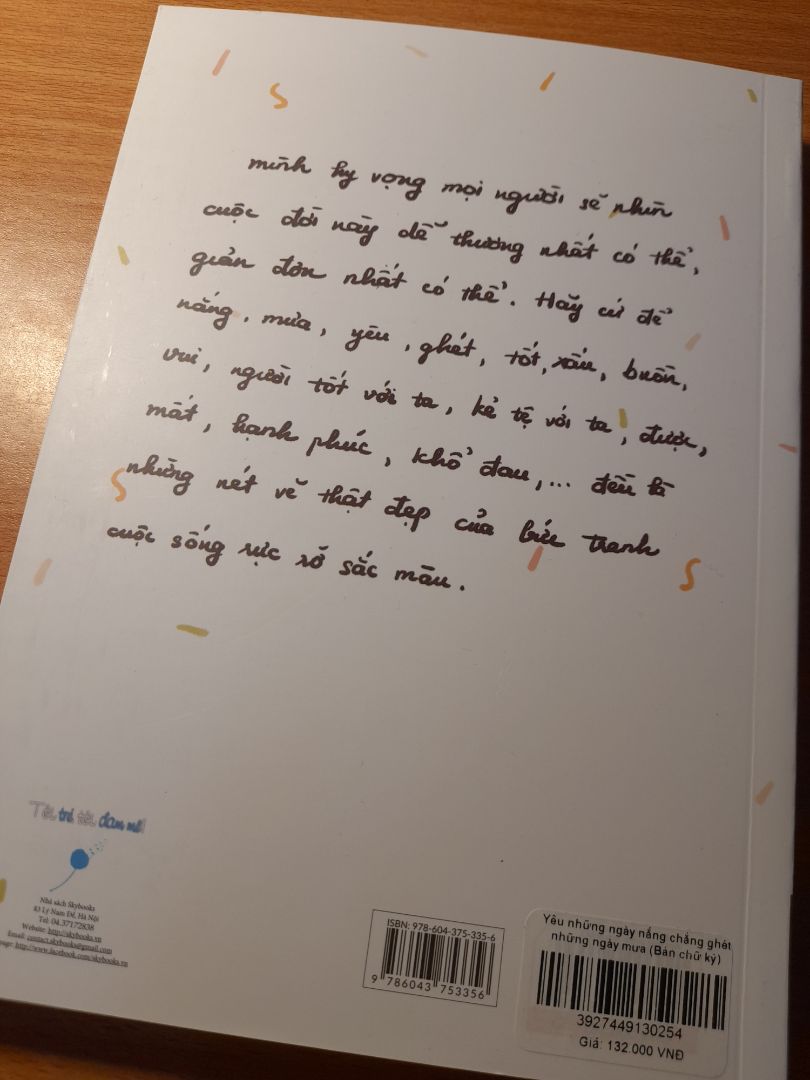 mình hy vọng mọi người sẽ nhìn
cuộc đời này dễ thương nhất có thể,
giản đơn nhất có thể. Hãy cứ để
nắng, mưa, yêu, ghét, tốt, xấu, buồn,
vui, người tốt với ta, kẻ tệ với ta, được,
mất, hạnh phúc, khổ đau,... đều là
những nét vẽ thật đẹp của bức tranh
cuộc sống rực rỡ sắc màu.
Tôi trẻ, tôi đam mê!
Nhà sách Skybooks
83 Lý Nam Đế, Hà Nội
Tel: 04.37172838
Website: http://skybooks.vn
Email: contact.skybooks@gmail.com
page: http://www.facebook.com/skybooks.vn
ISBN: 978-604-375-335-6
9 786043 753356
Yêu những ngày nắng chẳng ghét
những ngày mưa (Bản chữ ký)
3927449130254
Giá: 132.000 VNĐ